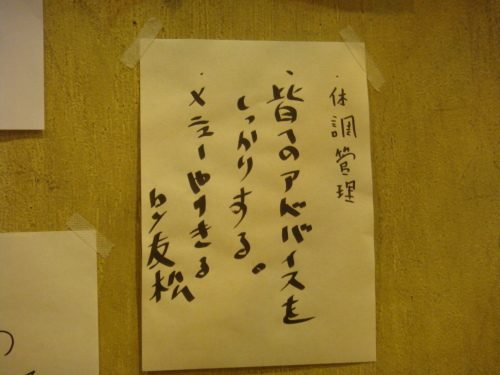 ・体調管理
・皆へのアドバイスを
しっかりする。
・メニューやりきる
友松